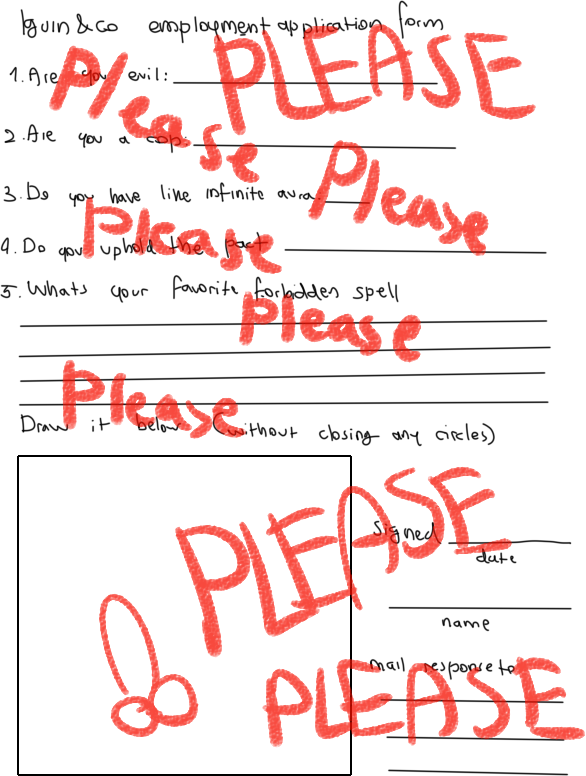 Iguin&co employment application form
PLEASE
1. Are you evil:
Please
2. Are you a cop:
Please
3. Do you have like infinite aura.
Please
4. Do you uphold the pact
5. Whats your favorite forbidden spell
Please
Please
Draw it below (without closing any circles)
PLEASE
Signed
date
name
mail response to
PLEASE